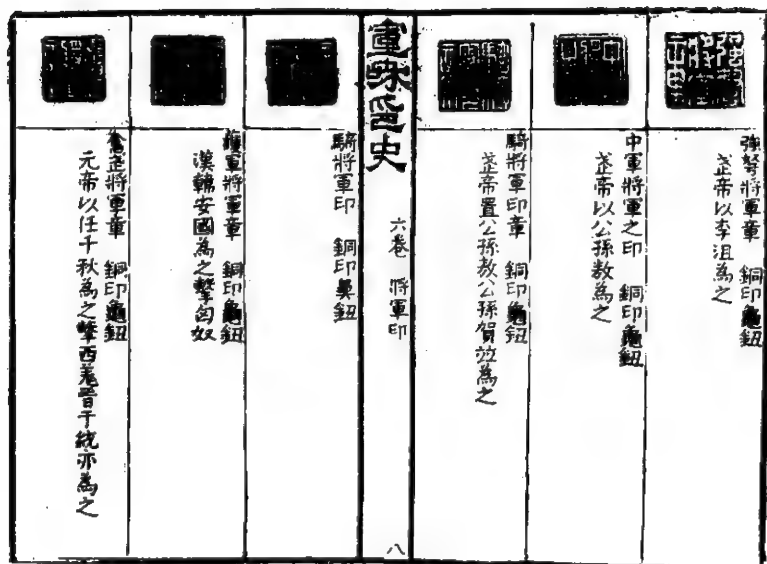 強弩將軍章　銅印龜鈕
武帝以李沮為之
中軍將軍之印　銅印龜鈕
武帝以公孫敖為之
騎將軍印章　銅印龜鈕
武帝置公孫敖公孫賀竝為之
宣和印史　六卷　將軍印　八
騎將軍印　銅印鼻鈕
護軍將軍章　銅印龜鈕
漢韓安國為之擊匈奴
奮武將軍章　銅印龜鈕
元帝以任千秋為之擊西羌晉于統亦為之